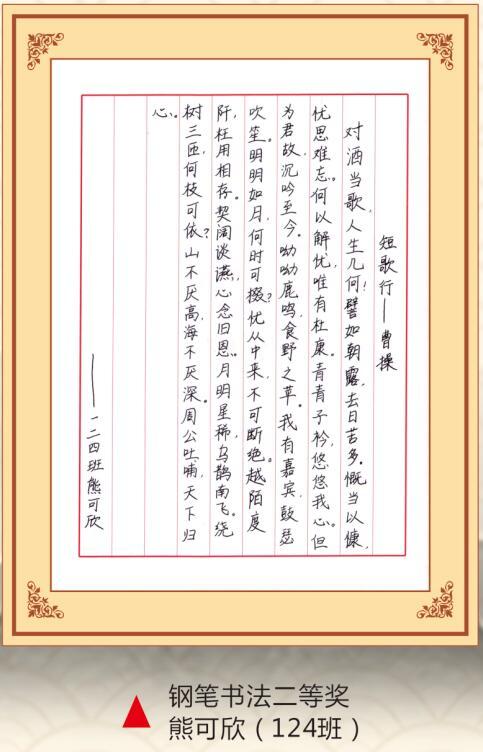 短歌行——曹操
对酒当歌,人生几何!譬如朝露,去日苦多。慨当以慷,
忧思难忘。何以解忧,唯有杜康。青青子衿,悠悠我心。但
为君故,沉吟至今。呦呦鹿鸣,食野之草。我有嘉宾,鼓瑟
吹笙。明明如月,何时可掇?忧从中来,不可断绝。越陌度
阡,枉用相存。契阔谈讌,心念旧恩。月明星稀,乌鹊南飞。绕
树三匝,何枝可依?山不厌高,海不厌深。周公吐哺,天下归
心。
——一二四班熊可欣
钢笔书法二等奖
熊可欣(124班)